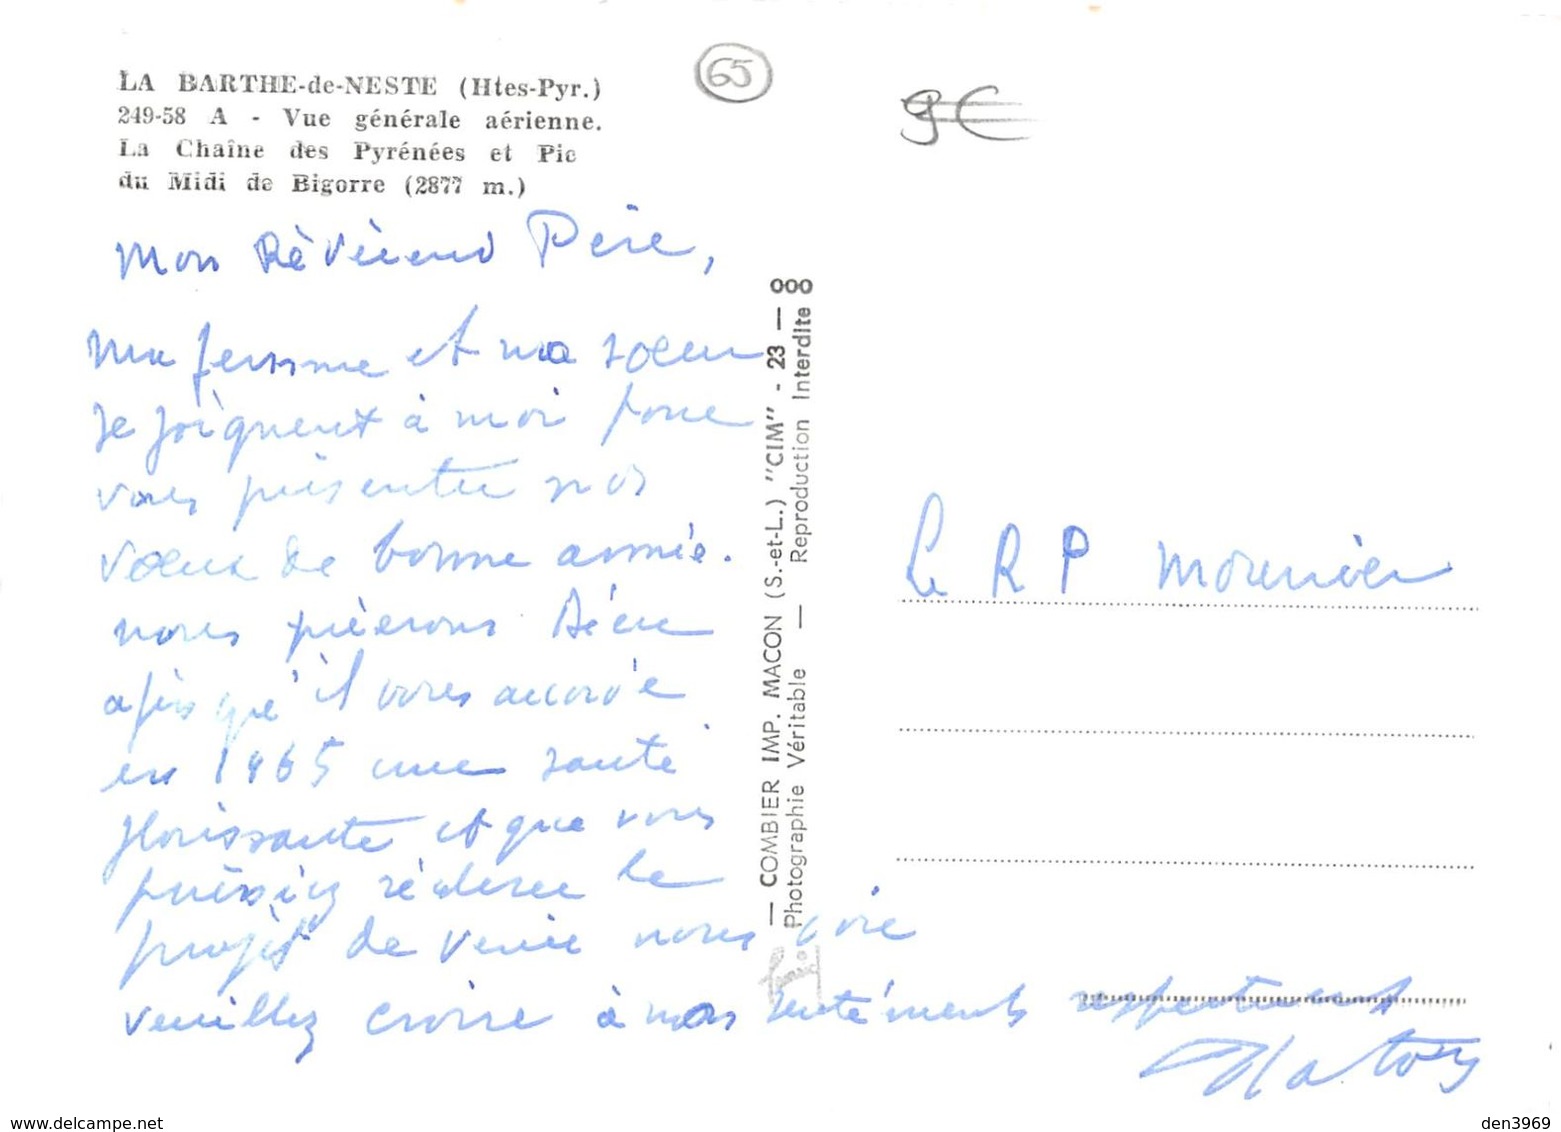 LA BARTHE-de-NESTE (Htes-Pyr.)
249-58 A - Vue générale aérienne.
La Chaîne des Pyrénées et Pic
du Midi de Bigorre (2877 m.)
65
9€
Mon Révérend Père,
ma femme et ma soeur
se joignent à moi pour
vous présenter nos
voeux de bonne année.
nous prierons Dieu
afin qu'il vous accorde
en 1965 une santé
florissante et que vous
puissiez réaliser le
projet de venir nous voir
veuillez croire à nos sentiments respectueux
Le R P Mounier
— COMBIER IMP. MACON (S.-et-L.) "CIM" - 23 — 000
Photographie Véritable — Reproduction Interdite
www.delcampe.net
den3969